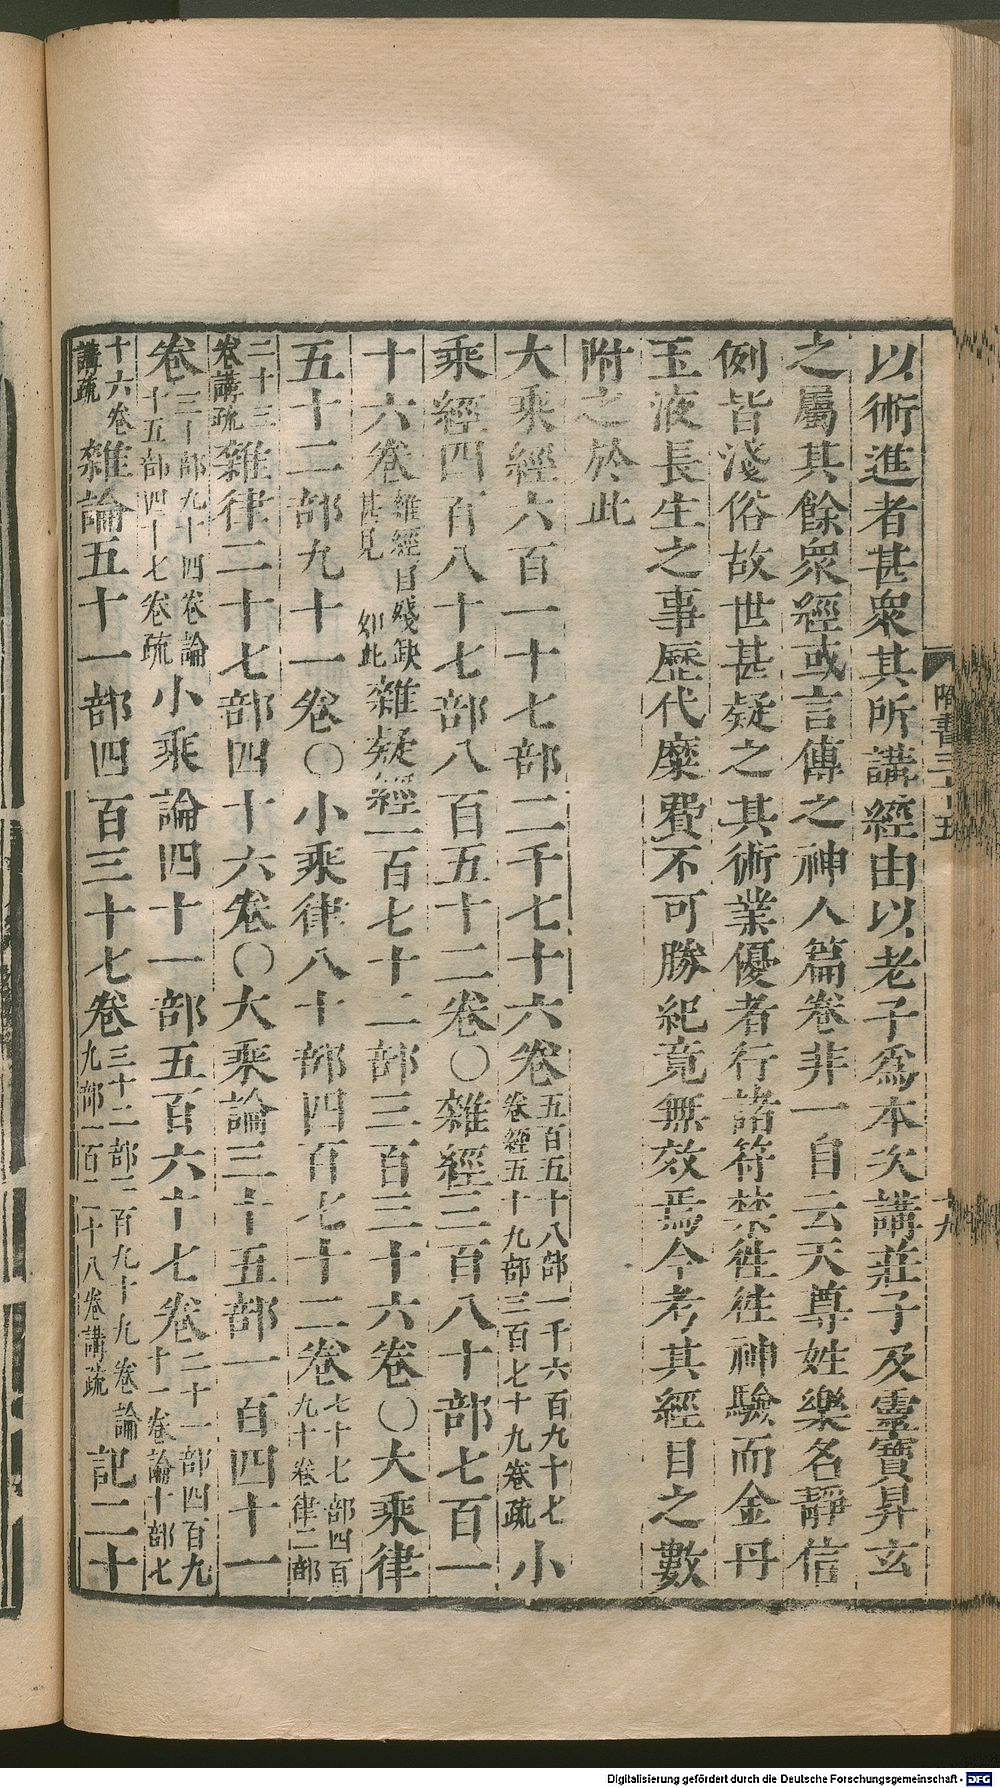 以術進者甚衆其所講經由以老子爲本次講莊子及靈寶昇玄
之屬其餘衆經或言傳之神人篇卷非一自云天尊姓樂名靜信
例皆淺俗故世甚疑之其術業優者行諸符禁徃徃神驗而金丹
玉液長生之事歷代糜費不可勝紀竟無效焉今考其經目之數
附之於此
大乘經六百一十七部二千七十六卷五百五十八部一千六百九十七卷經五十九部三百七十九卷疏小
乘經四百八十七部八百五十二卷〇雜經三百八十部七百一
十六卷雜經目殘缺甚見如此雜疑經一百七十二部三百三十六卷〇大乘律
五十二部九十一卷〇小乘律八十部四百七十二卷七十七部四百九十卷律二部
二十三卷講疏雜律二十七部四十六卷〇大乘論三十五部一百四十一
卷三十部九十四卷論十五部四十七卷疏小乘論四十一部五百六十七卷二十一部四百九十一卷論十部七
十六卷講疏雜論五十一部四百三十七卷三十二部二百九十九卷論九部一百二十八卷講疏記二十
隋書三十五
十九
Digitalisierung gefördert durch die Deutsche Forschungsgemeinschaft - DFG